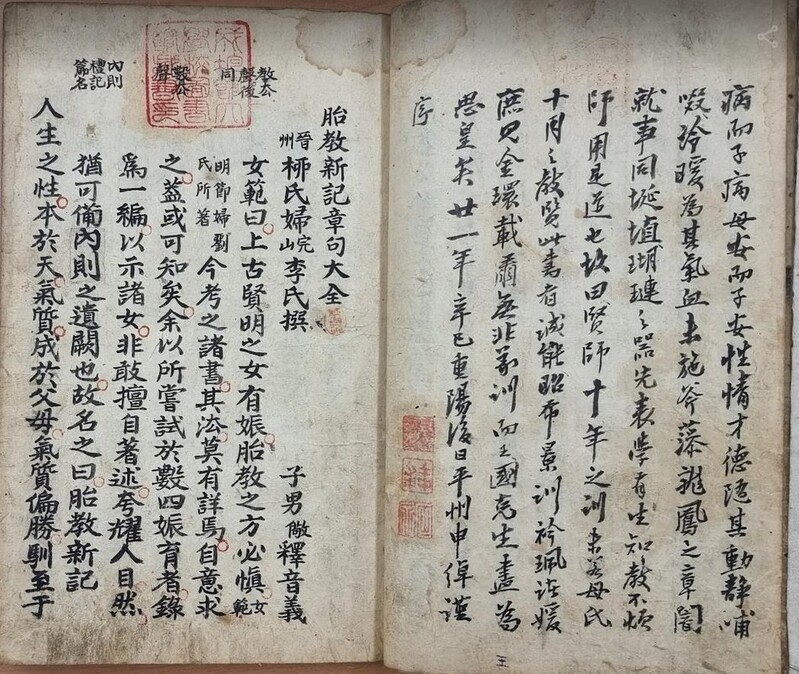 病而子病母安而子安性情才德隨其動靜哺
啜冷暖為其氣血未施斧藻龍鳳之章闇
就事同埏埴瑚璉之器先表學有生知教不煩
師用是道也故曰賢師十年之訓未若母氏
十月之教覽此書者誠能昭布景訓衿珮諸媛
庶兄金環載肅無非象訓而王國克生盡為
思皇矣廿一年辛巳重陽後日平州申綽謹
序
教去聲後同
內則禮記篇名
胎教新記章句大全
晉州柳氏婦完山李氏撰 子男儆釋音義
女範曰上古賢明之女有娠胎教之方必愼女範
明節婦劉氏所著今考之諸書其法莫有詳焉自意求
之蓋或可知矣余以所嘗試於數四娠育者錄
爲一編以示諸女非敢擅自著述夸耀人目然
猶可備內則之遺闕也故名之曰胎教新記
人生之性本於天氣質成於父母氣質偏勝馴至于